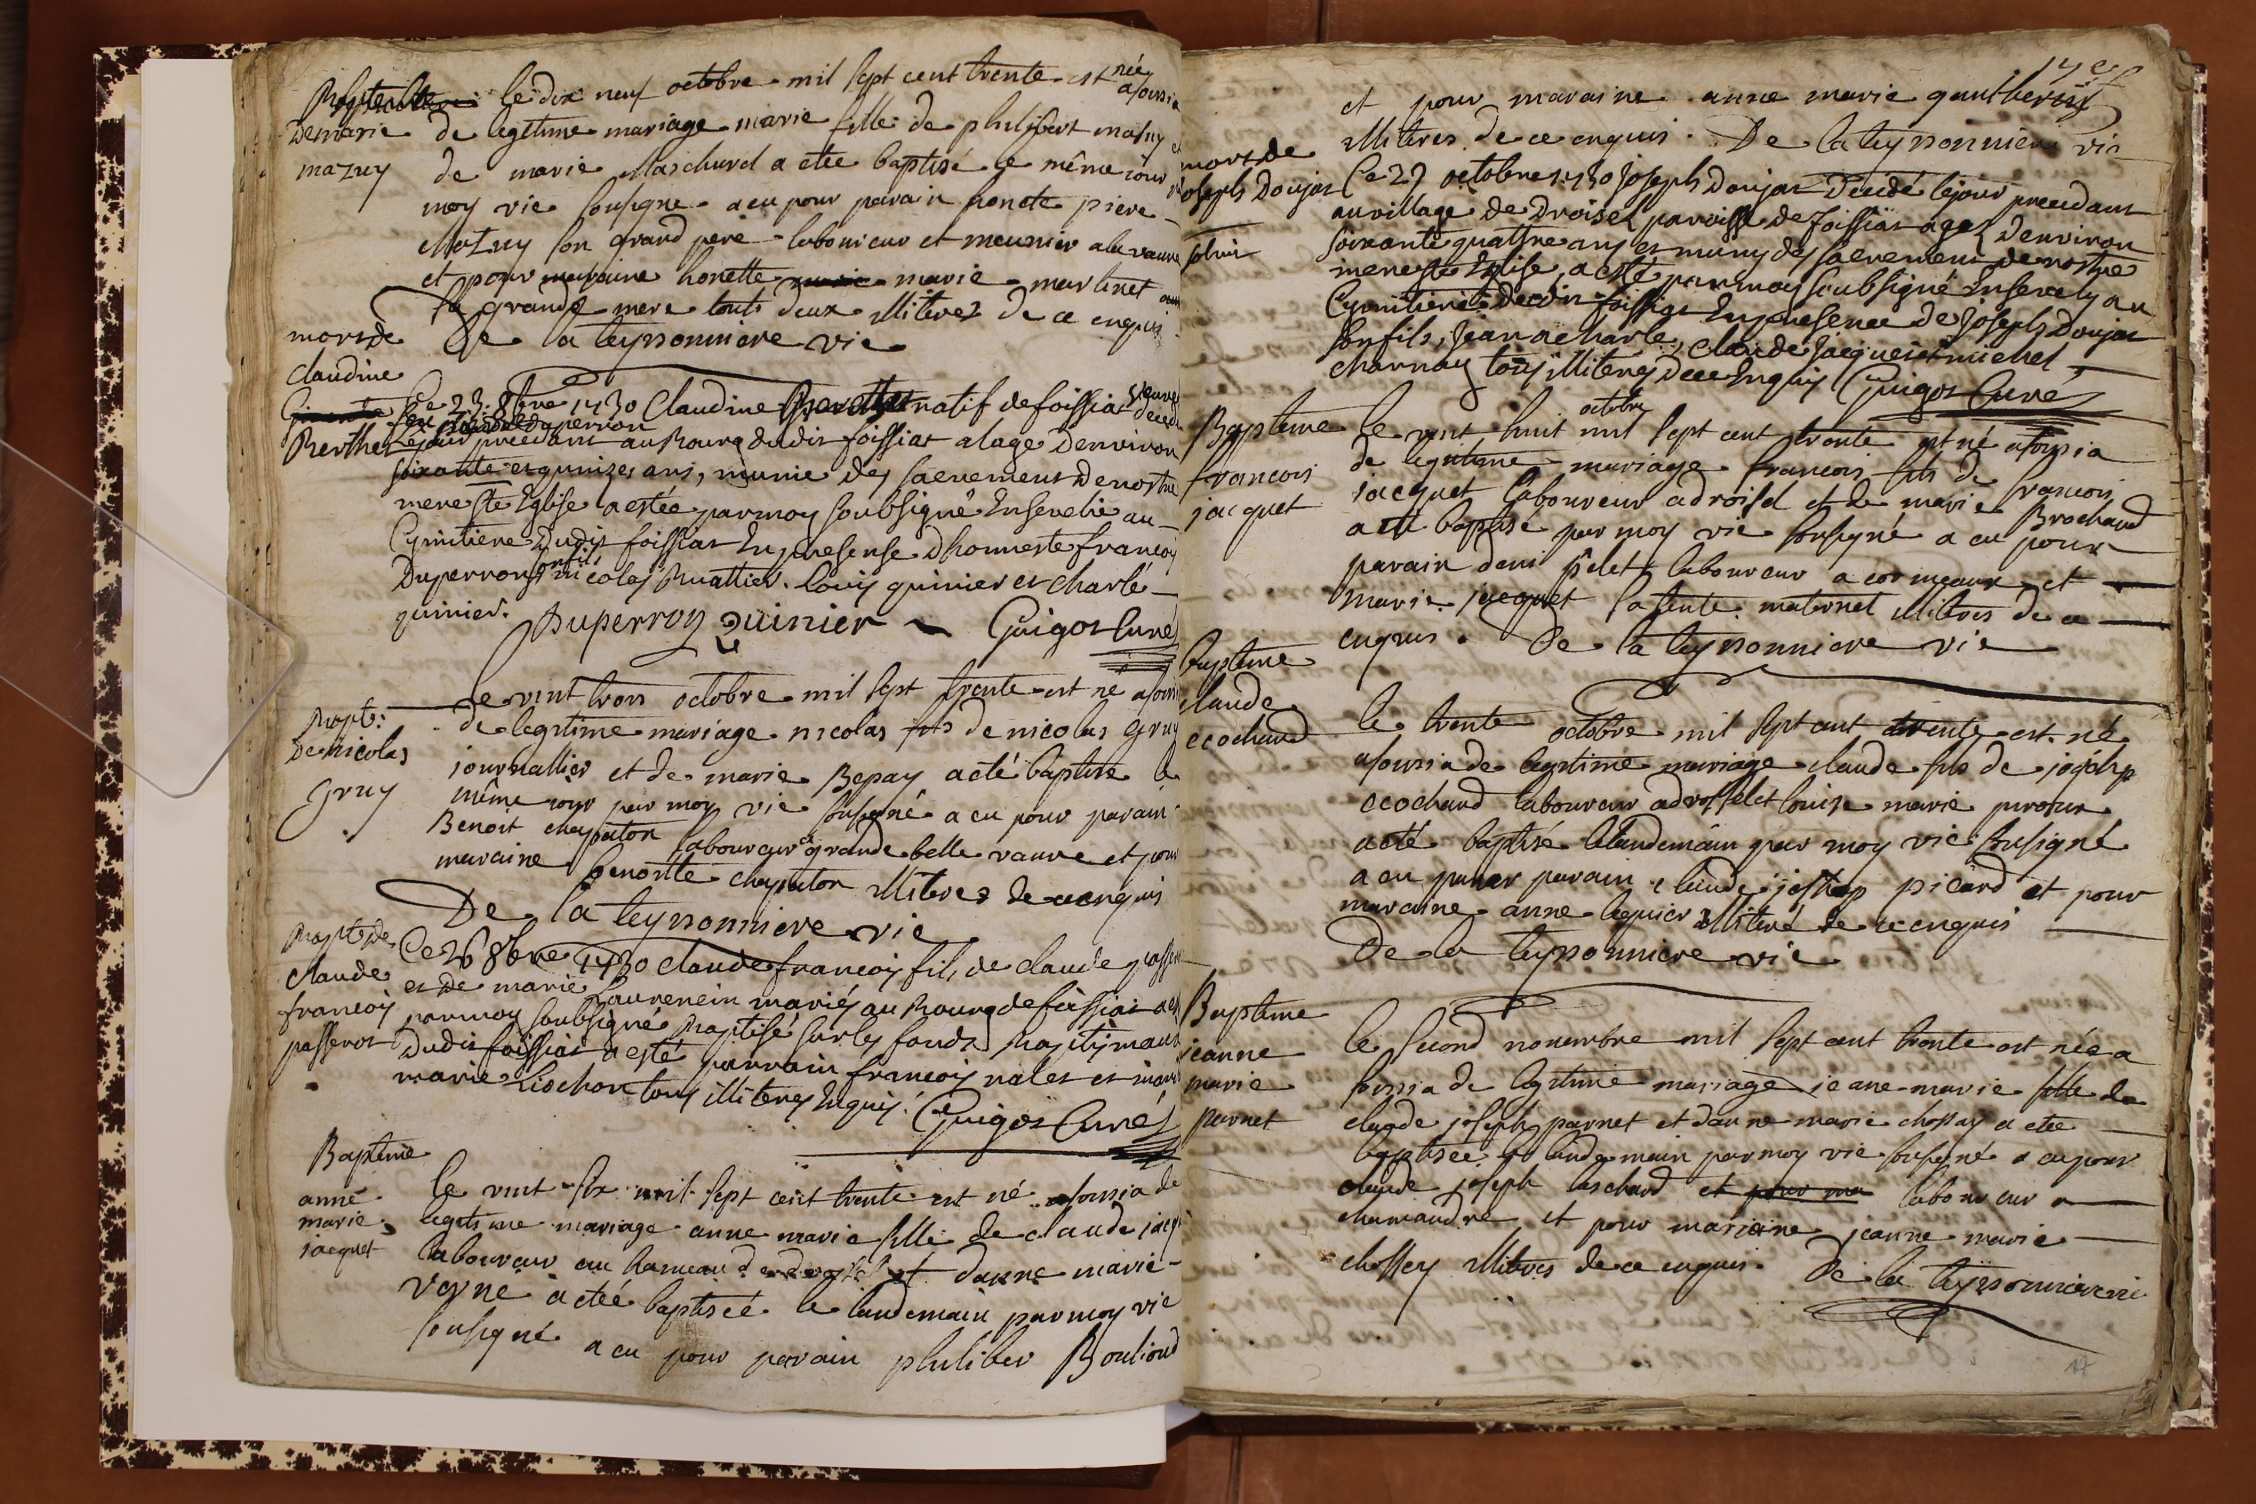 Baptesme
De marie
mazuy
le dix neuf octobre mil sept cent trente est née a foissia
de legitime mariage marie fille de philibert mazuy et
de marie Maschurd a etee baptisé le même jour
moy vic sousigne a eu pour parain honete piere
mazuy son grand pere labourieur et meunier a la vavre
et pour maraine honette marie marlinet
sa grande mere touts deux illiterez de ce enquis
De la teyssonniere vic
mort de
claudine
Berthet
Ce 23 8bre 1730 Claudine natif de foissiat
le jour precedant au Bourg dudit foissiat a lage Denviron
soixante et quinzes ans, munie des sacrements De nostre
mere Ste Eglise a estée par moy soubsigné Ensevelie au
Cymitiere dudit foissiat En presense Dhonneste francois
Duperron son fils nicolas Ruattier. louis quinier et charle
quinier.
Duperron quinier Guigot Curé
Bapte:
De nicolas
Gruy
Le vint trois octobre mil sept trente est né a foissia
de legitime mariage nicolas fils de nicolas Gruy
journallier et de marie Bepay a eté baptise le
même jour par moy vic sousigné a eu pour parain
Benoit chaputon laboureur a grande belle vavre et pour
maraine benoitte chaputon illiteres de ce enquis
De la teyssonniere vic
Bapte de
claude
francois
passerot
Ce 26 8bre 1730 claude francois fils de claude passerot
et de marie laurencin mariés au Bourg de foissiat a esté
par moy soubsigné Baptisé sur les fonds Baptismaux
dudit foissiat a esté parrain francois nalet et
marie Liochon tous illiteres Enquis. Guigot Curé
Baptême
anne
marie
jacquet
le vint six mil sept cent trente est né a foissia de
legitime mariage anne marie fille de claude jacquet
laboureur au hameau de et danne marie
voyne a eteé baptiseé le landemain par moy vic
sousigné a eu pour parain philiber Boulioud
et pour maraine anne marie
illiteres de ce enquis. De la teyssonniere vic
mort de
Joseph Doujat
Ce 27 octobre 1730 Joseph Doujat Decedé le jour precedant
au village de Droisel paroisse de foissiat agez denviron
soixante quattre ans et muny des sacrements de nostre
mere ste Eglise, a esté par moy soubsigné Ensevely au
Cymitiere dudit foissiat En presence de Joseph Doujat
son fils, Jean acharle, Claude Jacquet et michel
charnay tous illiteres De ce Enquis Guigot Curé
Baptême
francois
jacquet
le vint huit octobre mil sept cent trente est né a foissia
de legitime mariage francois fils de francois
jacquet laboureur a droisel et de marie Brochand
a eté baptisé par moy vic sousigné a eu pour
parain denis pelet laboureur a cormeaux, et
marie jacquet sa tente maternel illiteres de ce
enquis. De la teyssonniere vic
baptême
claude
ecochard
le trente octobre mil sept cent trente est né
a foissia de legitime mariage claude fils de joseph
ecochard laboureur a droissel et louise marie
a eté baptisé le landemain par moy vic sousigné
a eu pour parain claude joseph picard et pour
maraine anne lequier illiteré de ce enquis
De la teyssonniere vic
Baptême
jeanne
marie
parnet
le second novembre mil sept cent trente est née a
foissia de legitime mariage jeane marie fille de
claude joseph parnet et danne marie chossay a eté
baptisée le landemain par moy vic sousigné a eu pour
claude joseph laschard et pour ma laboureur a
chamandre et pour maraine jeanne marie
chossey illiteres de ce enquis. De la teyssonniere vic
17